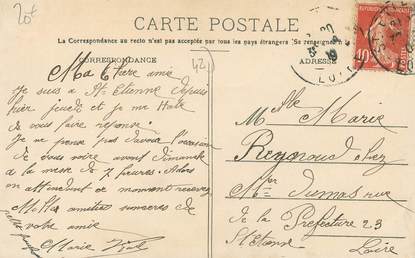 20f
CARTE POSTALE
La Correspondance au recto n'est pas acceptée par tous les pays étrangers (Se renseigner
CORRESPONDANCE
42
ADRESSE
Ma Chère amie
Je suis a St Etienne depuis
hier jeudi et je me Hate
de vous faire reponse.
Je ne pense pas d'avoir l'occasion
de vous voire avant dimanche
a la messe de 7 heures. Alors
en attendant ce moment recevez
Meilles amities sinceres de
votre amie
Marie
Mlle Marie
Reynaud chez
Mr Dumas rue
de la Prefecture 23
St Etienne
Loire
10
LOIRE